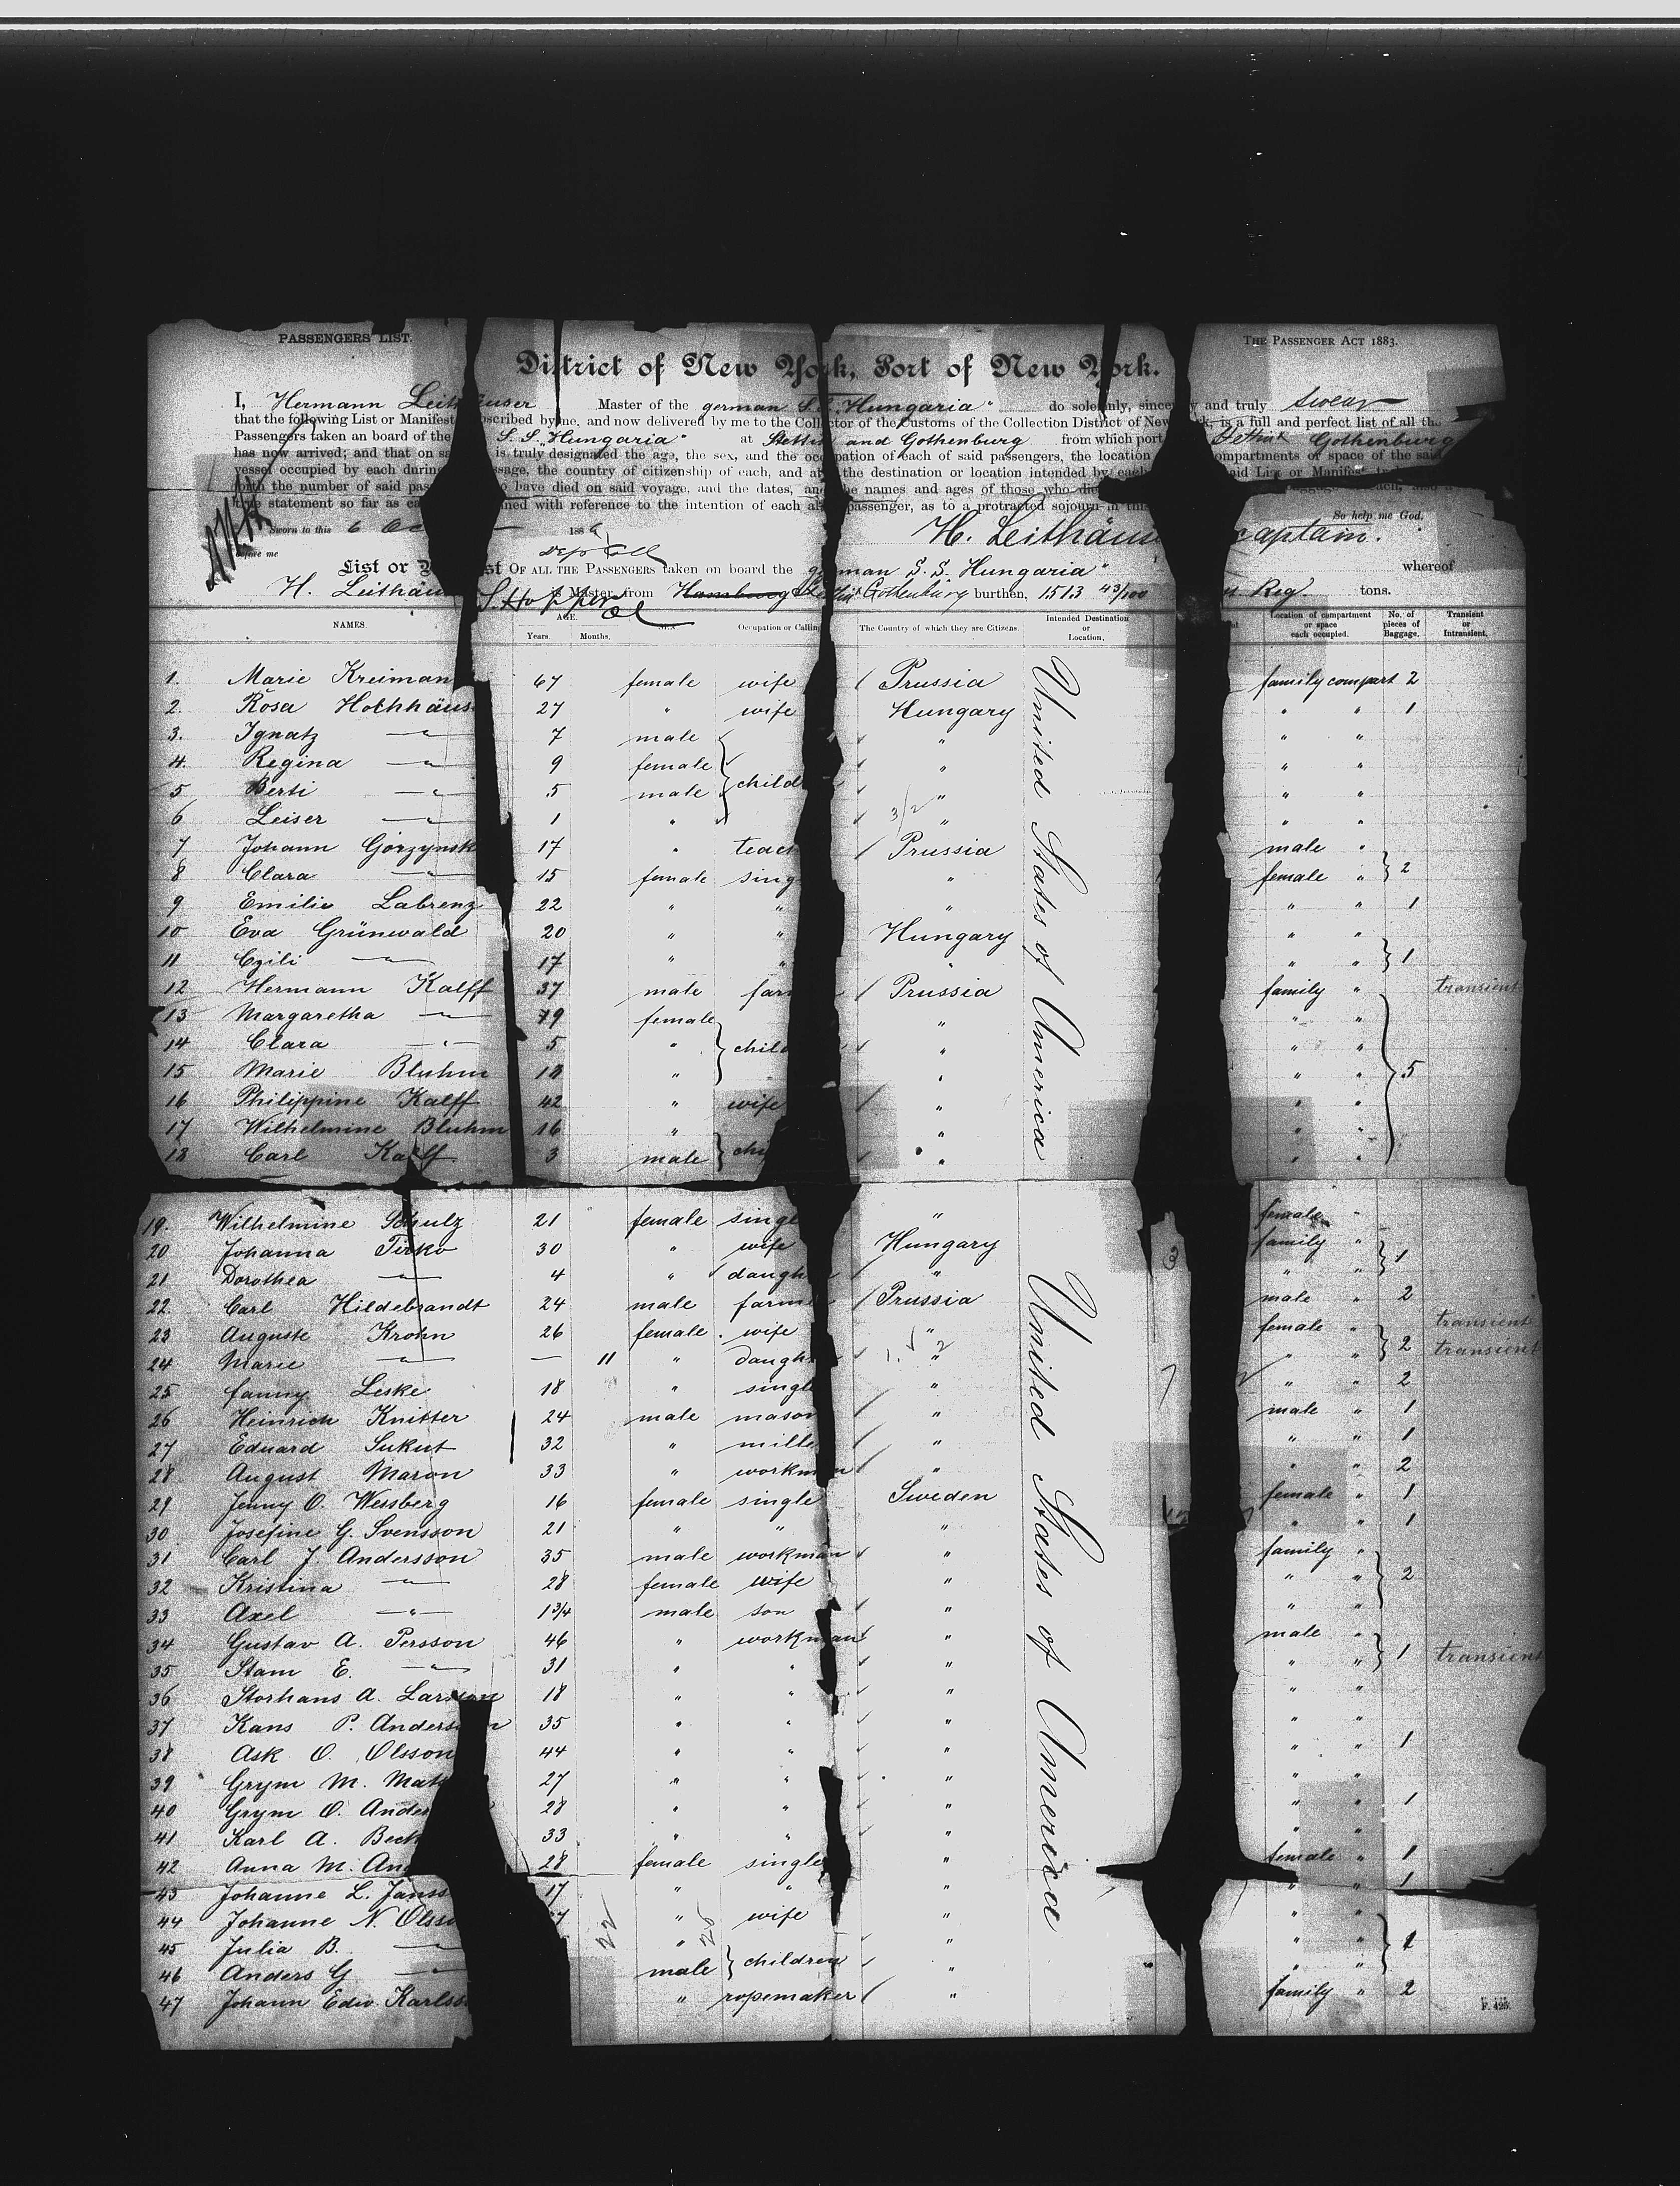 PASSENGERS' LIST.
THE PASSENGER ACT 1883.
District of New York, Port of New York.
I, Hermann Leithäuser Master of the german S.S. "Hungaria" do solemnly, sincerely and truly swear
that the following List or Manifest subscribed by me, and now delivered by me to the Collector of the Customs of the Collection District of New York, is a full and perfect list of all the
Passengers taken an board of the S.S. "Hungaria" at Stettin and Gothenburg from which port Gothenburg
has now arrived; and that on is truly designated the age, the sex, and the occupation of each of said passengers, the location compartments of space of the said
vessel occupied by each during passage, the country of citizenship of each, and also the destination or location intended by each said List or Manifest
forth the number of said have died on said voyage, and the dates, and the names and ages of those who
true statement so far as with reference to the intention of each passenger, as to a protracted sojourn in this
So help me God.
Sworn to this 6 Oct 188
before me
H. Leithäuser captain.
List or OF ALL THE PASSENGERS taken on board the german S.S. "Hungaria" whereof
H. Leithäu is Master, from Hamburg Stettin & Gothenburg burthen, 1513 43/100 Reg. tons.
NAMES. AGE. Years. Months. SEX Occupation or Calling The Country of which they are Citizens. Intended Destination or Location. Location of compartment or space each occupied. No. of pieces of Baggage. Transient or Intransient.
United States of America
1. Marie Kreiman 67 female wife Prussia family compart 2
2. Rosa Hochhäus 27 " wife Hungary " " 1
3. Ignatz " 7 male " " "
4. Regina " 9 female " " "
5 Berti " 5 male child " " "
6 Leiser " 1 " 3/2 " " "
7 Johann Gorzynsk 17 " teach Prussia male "
8 Clara " 15 female sing " female " 2
9 Emilie Labrenz 22 " " " " " 1
10 Eva Grünwald 20 " " Hungary " "
11 Czili " 17 " " " " " 1
12 Hermann Kalff 37 male far Prussia family " transient
13 Margaretha " 19 female " " "
14 Clara " 5 " child " " "
15 Marie Bluhm 18 " " " " 5
16 Philippine Kalff 42 " wife " " "
17 Wilhelmine Bluhm 16 " " " "
18 Carl Kalff 3 male chi " " "
19. Wilhelmine Schulz 21 female single " female "
20 Johanna Tirko 30 " wife Hungary family " 1
21 Dorothea " 4 " daugh " " "
22. Carl Hildebrandt 24 male farme Prussia male " 2
23 Auguste Krohn 26 female wife " female " transient
24 Marie " — 11 " daugh " " " 2 transient
25 fanny Leske 18 " single " " " 2
26 Heinrich Knitter 24 male mason " male " 1
27 Eduard Sukut 32 " mille " " " 1
28 August Maron 33 " workman " " " 2
29 Jenny O. Wessberg 16 female single Sweden female " 1
30. Josefine G. Svensson 21 " " " " " 1
31 Carl J. Andersson 35 male workman " family "
32 Kristina " 28 female wife " " " 2
33 Axel " 1 3/4 male son " " "
34 Gustav A. Persson 46 " workman " male "
35 Stam E. " 31 " " " " " 1 transient
36 Storhans A. Larsson 18 " " " " "
37 Kans P. Andersson 35 " " " " "
38 Ask O. Olsson 44 " " " " " 1
39 Grym M. Mats 27 " " " " "
40 Grym O. Ander 28 " " " " " 1
41 Karl A. Beck 33 " " " " "
42 Anna M. And 28 female single " female " 1
43 Johanne L. Janss 17 " " " " " 1
44 Johanne N. Olss 7 " wife " " "
45 Julia B. " " " " " 1
46 Anders G. " male children " " "
47 Johann Edw. Karlss " ropemaker " family " 2
United States of America
F. 425.